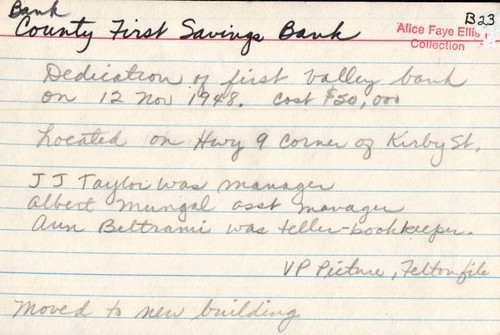 Bank
County First Savings Bank
B23
Alice Faye Ellis
Collection
Dedication of first valley bank
on 12 Nov 1948. cost $50,000
Located on Hwy 9 corner of Kirby St.
J J Taylor was manager
Albert Mungal asst manager
Ann Beltrami was teller-bookkeeper.
VP Picture, Felton file
Moved to new building